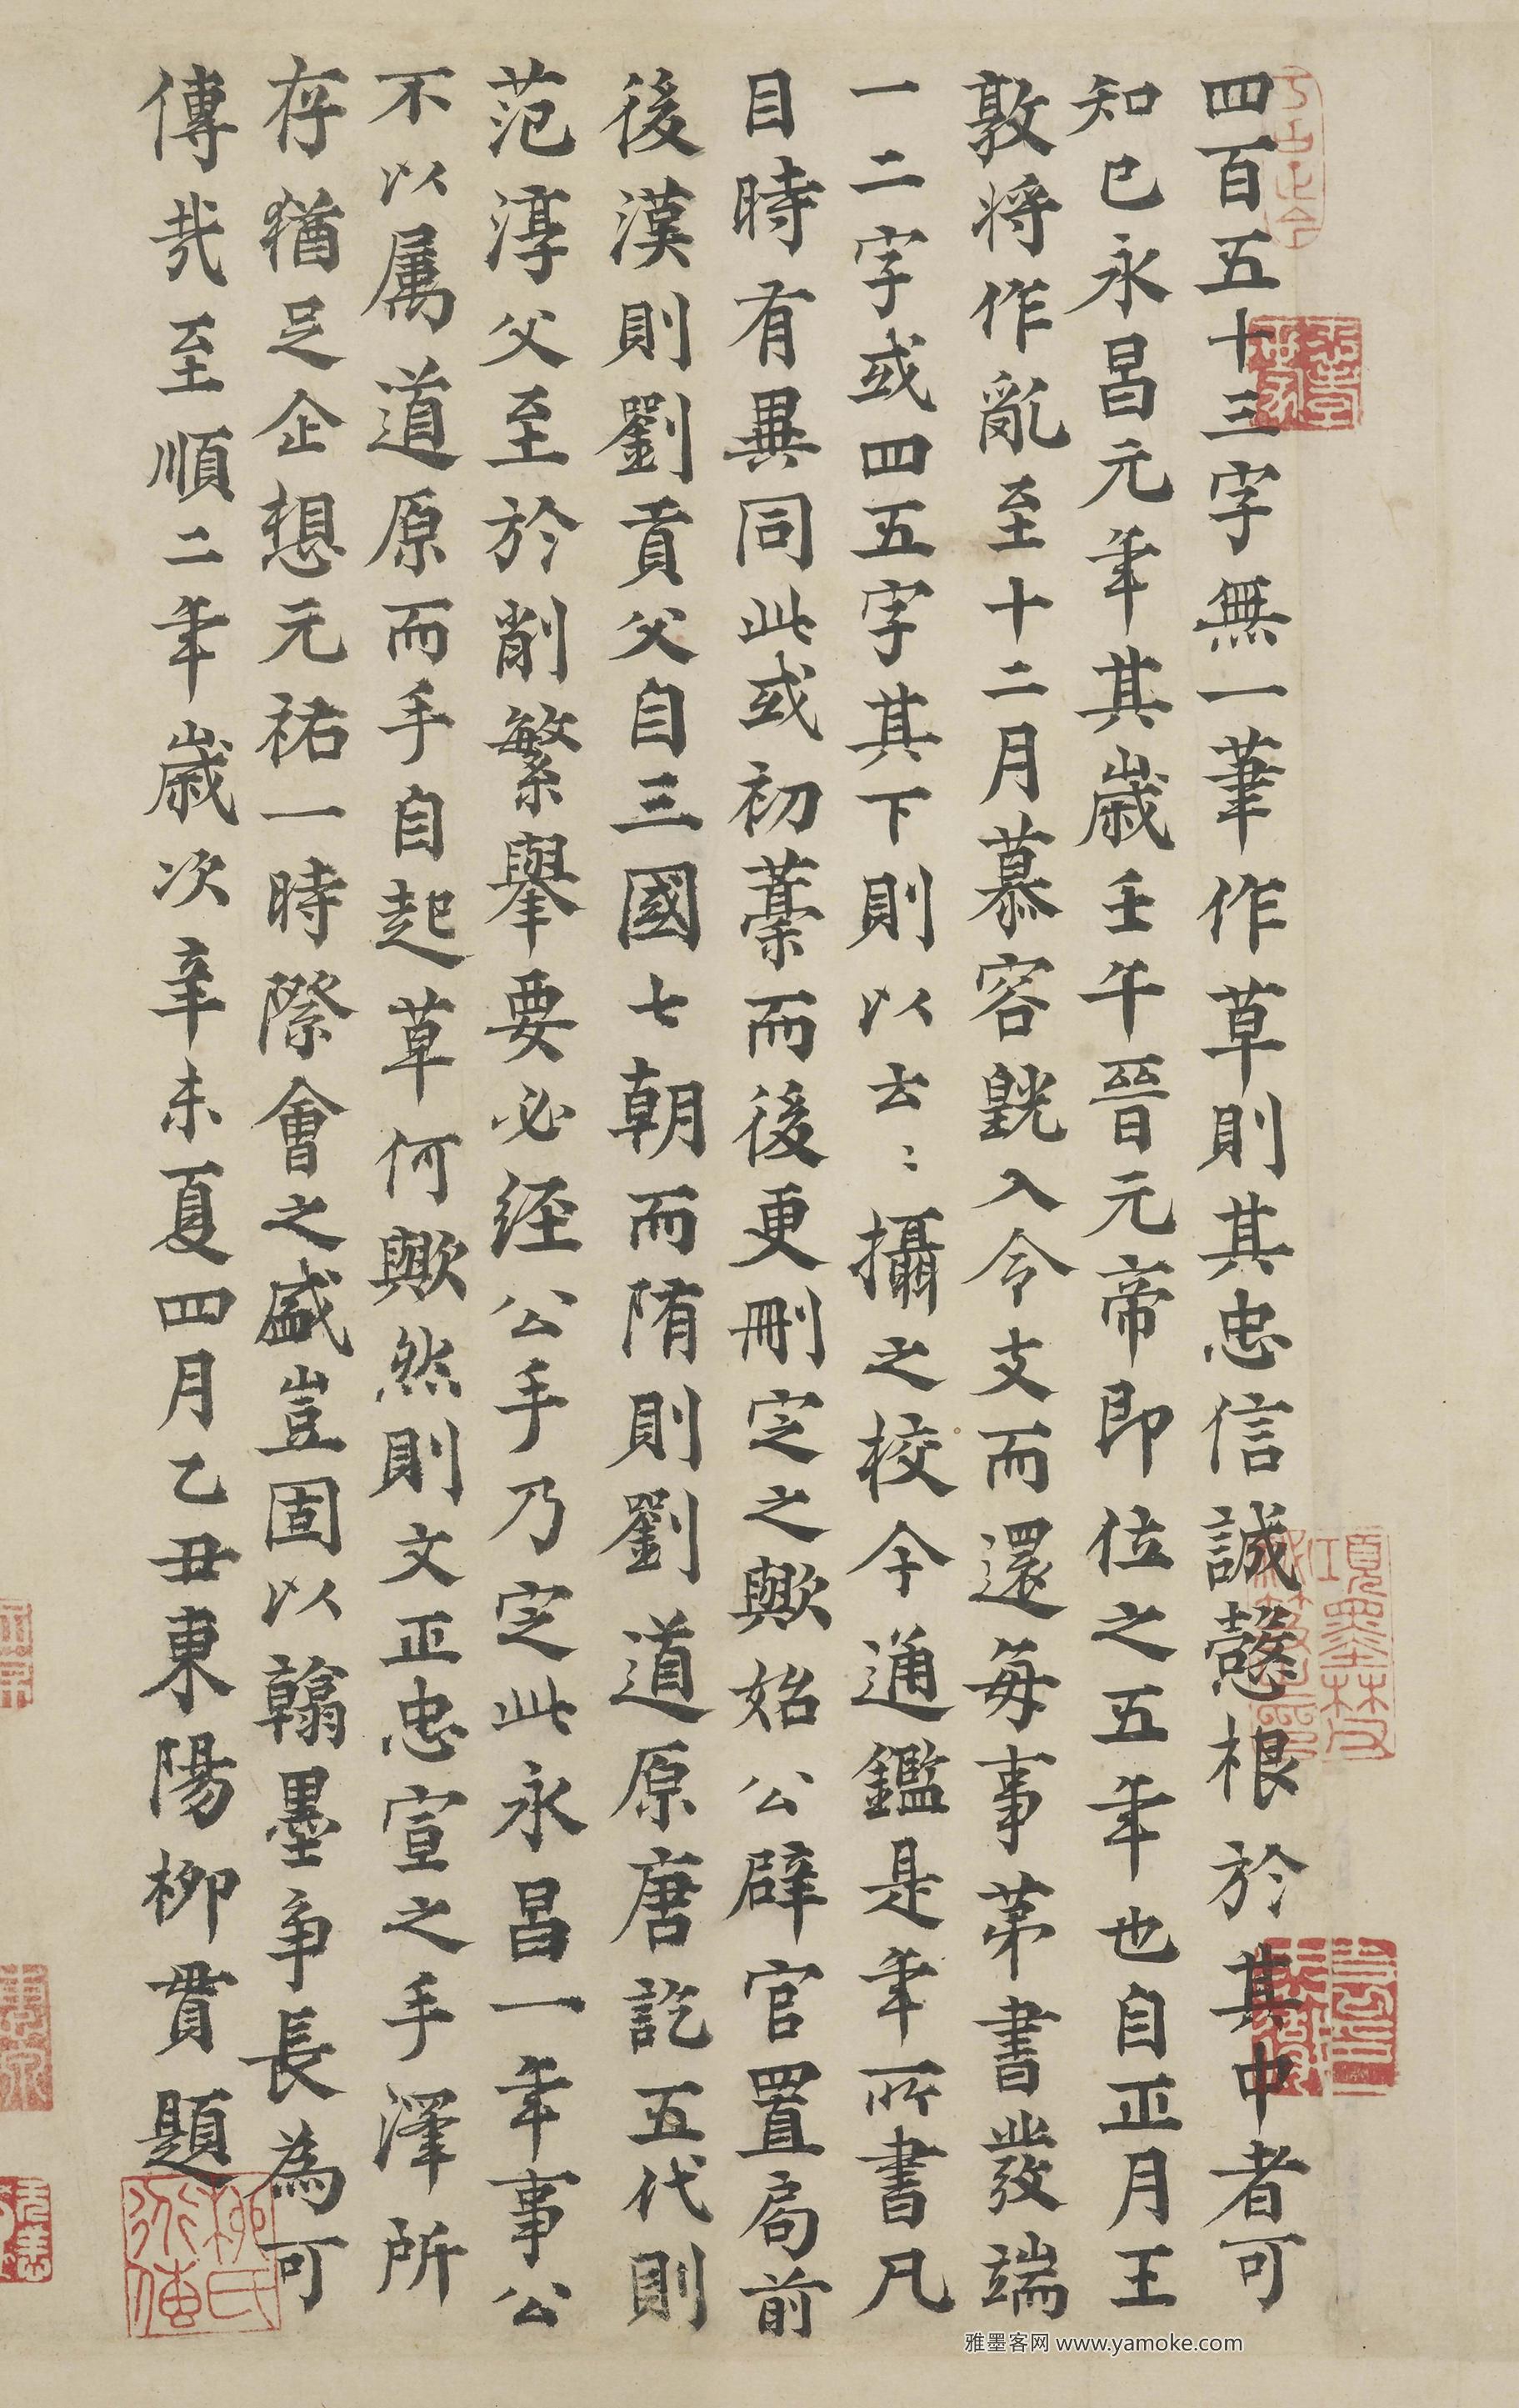 四百五十三字無一筆作草則其忠信誠慤根於其中者可
知已永昌元年其歲壬午晉元帝即位之五年也自正月王
敦將作亂至十二月慕容皝入令支而還每事第書發端
一二字或四五字其下則以云〻攝之校今通鑑是年所書凡
目時有異同此或初藁而後更刪定之歟始公辟官置局前
後漢則劉貢父自三國七朝而隋則劉道原唐訖五代則
范淳父至於削繁舉要必經公手乃定此永昌一年事公
不以屬道原而手自起草何歟然則文正忠宣之手澤所
存猶足企想元祐一時際會之盛豈固以翰墨爭長為可
傳哉至順二年歲次辛未夏四月乙丑東陽柳貫題
柳氏
項墨林父
雅墨客网 www.yamoke.com